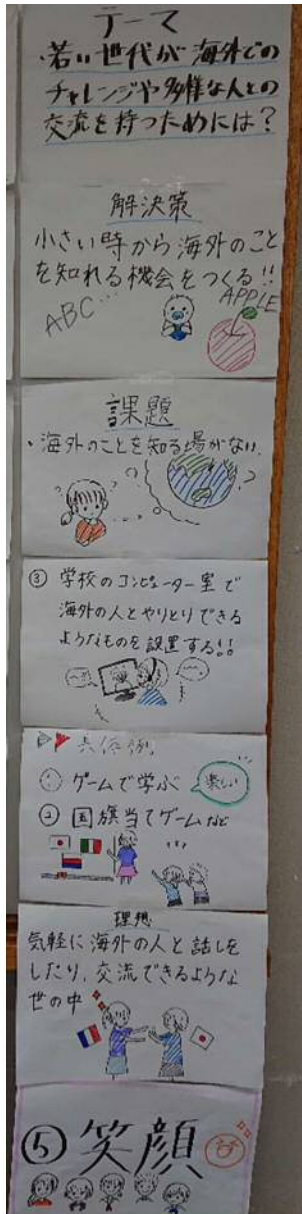 テーマ
・若い世代が海外での
チャレンジや多様な人との
交流を持つためには？
解決策
小さい時から海外のこと
を知れる機会をつくる!!
ABC…
APPLE
課題
・海外のことを知る場がない。
③ 学校のコンピューター室で
海外の人とやりとりできる
ようなものを設置する!!
具体例
① ゲームで学ぶ
楽しい
② 国旗当てゲームなど
理想
気軽に海外の人と話しを
したり、交流できるような
世の中
⑤ 笑顔